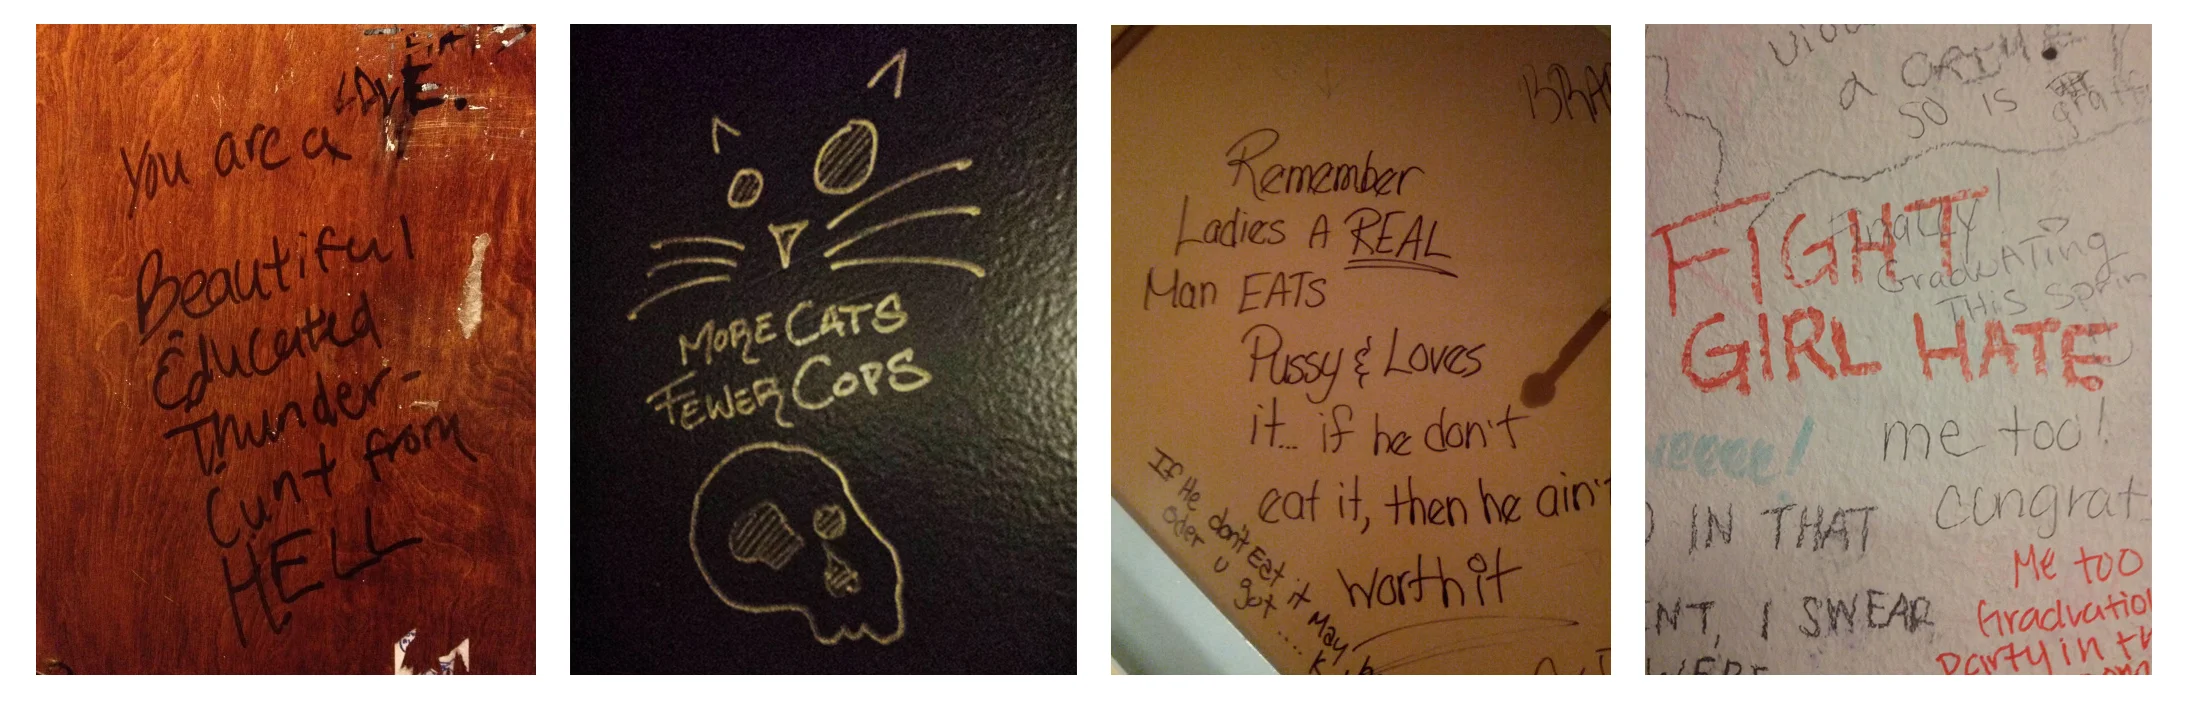 LOVE.
You are a
Beautiful
Educated
Thunder-
Cunt from
HELL
MORE CATS
FEWER COPS
BRA
Remember
Ladies A REAL
Man EATS
Pussy & Loves
it... if he don't
eat it, then he ain't
worth it
If He don't Eat it May
oder u got ....
a CRIME
SO IS
FIGHT
GIRL HATE
Finally!
GraduATing
THIS Sprin
me too!
congrat
IN THAT
ENT, I SWEAR
WERE
Me too
Graduation
party in th